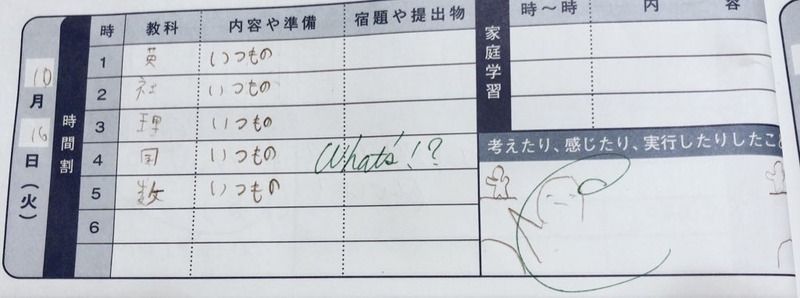 10月16日(火)
時間割
時 教科 内容や準備 宿題や提出物
1 英 いつもの
2 社 いつもの
3 理 いつもの
4 国 いつもの What's!?
5 数 いつもの
6
家庭学習
時~時 内容
考えたり、感じたり、実行したりしたこ